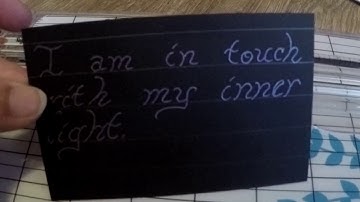 I am in touch
with my inner
light.